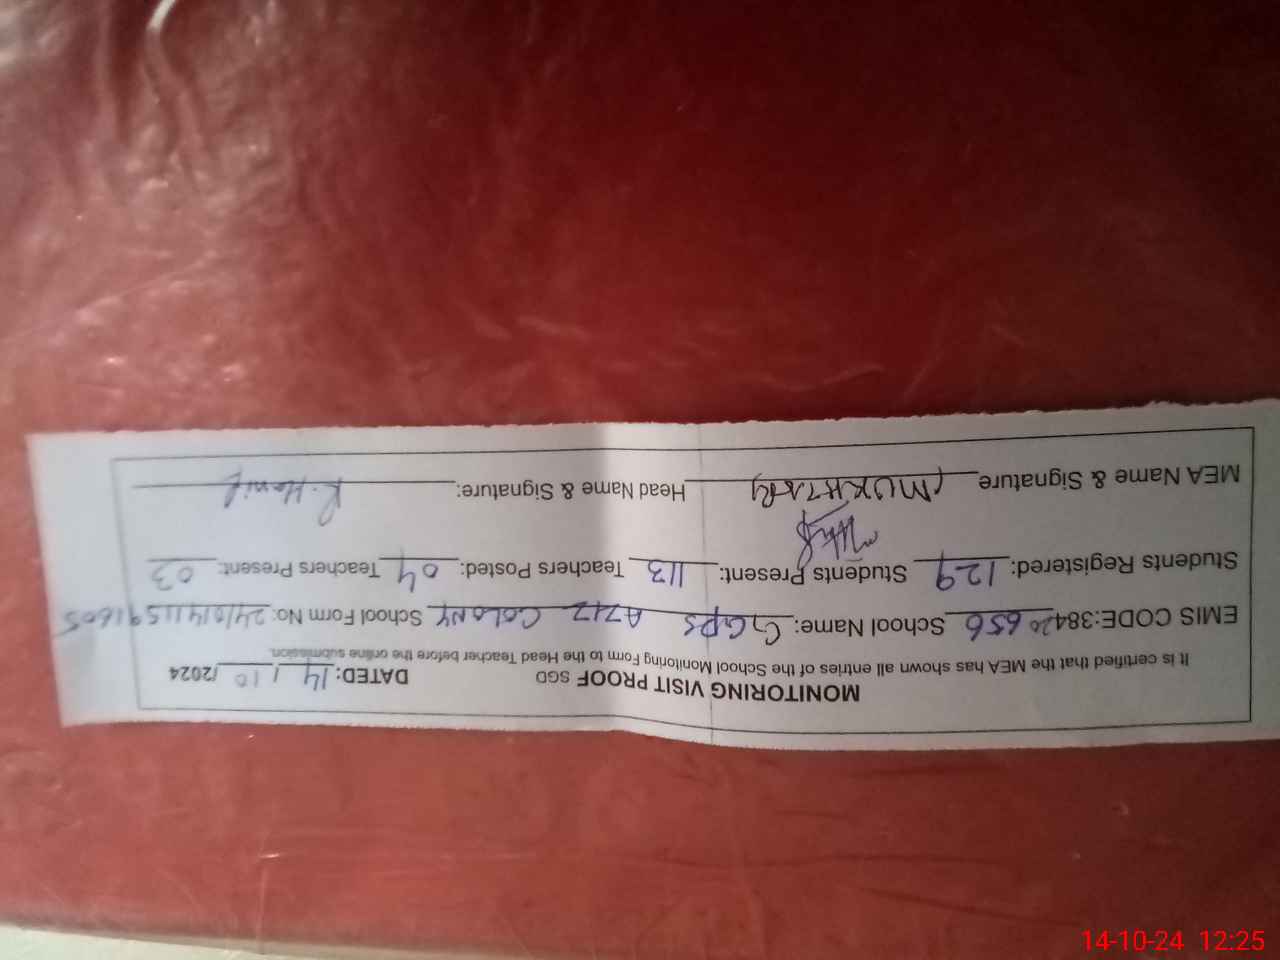 MONITORING VISIT PROOF SGD DATED: 14 / 10 /2024
It is certified that the MEA has shown all entries of the School Monitoring Form to the Head Teacher before the online submission.
EMIS CODE:38420656 School Name: GGPS COLONY School Form No:
Students Registered: 129 Students Present: 113 Teachers Posted: 04 Teachers Present: 03
MEA Name & Signature Head Name & Signature: R. Hanif
14-10-24 12:25